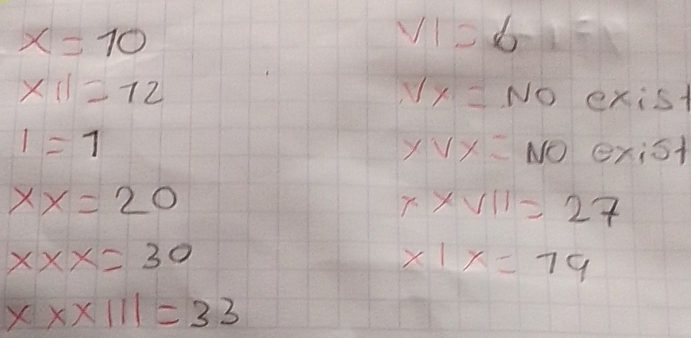 X = 10
XII = 12
I = 1
XX = 20
XXX = 30
XXXIII = 33
VI = 6
VX = NO exist
XVX = NO exist
XXVII = 27
XIX = 19